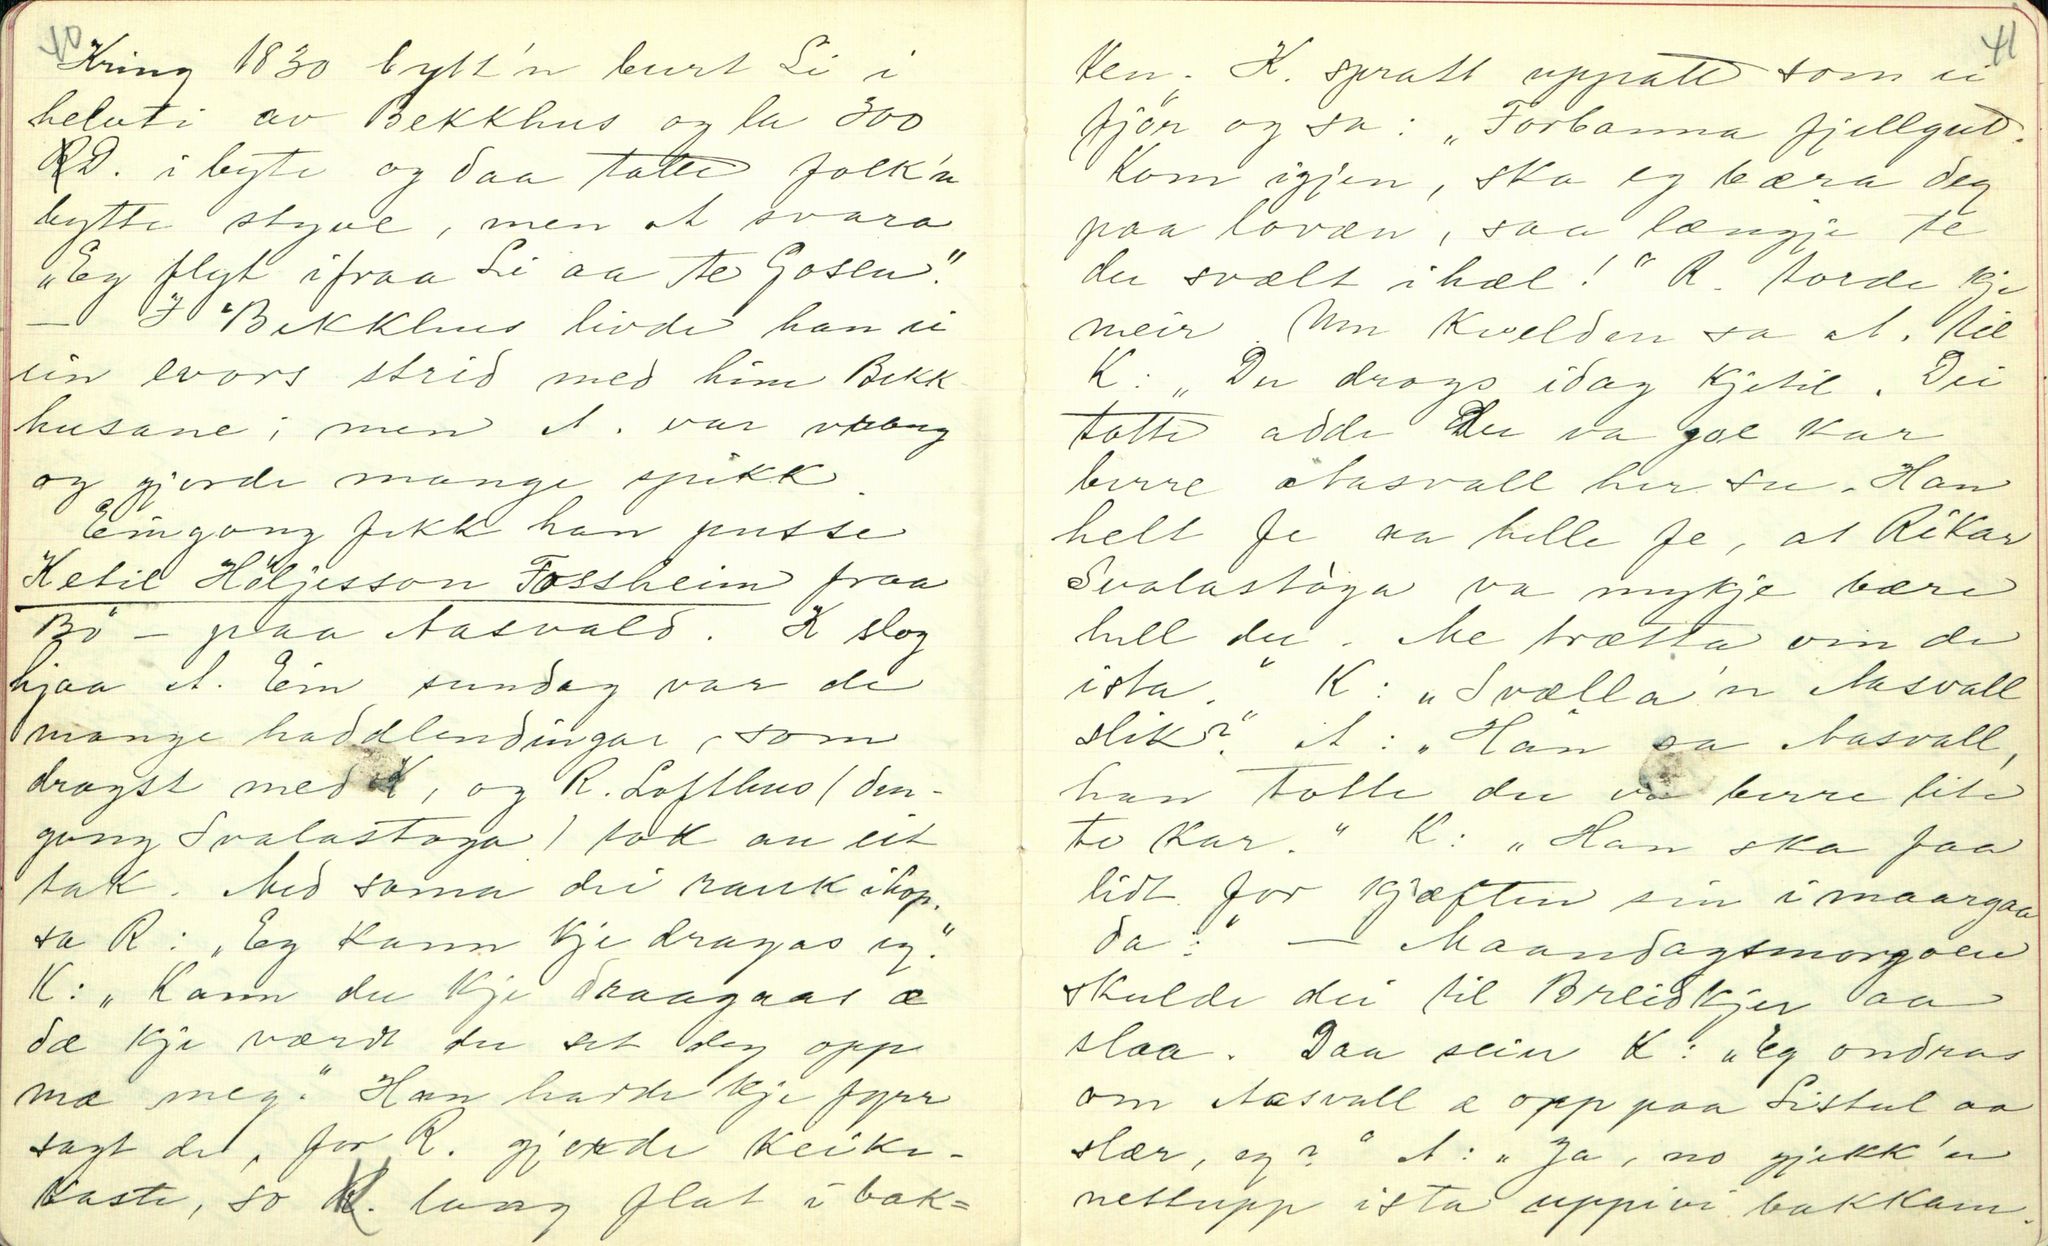 40
Kring 1830 bytt'n burt Li i
heluti av Bekkhus og la 300
RD. i byte og daa totte folk'n
bytte styve, men A svara
„Eg flyt ifraa Li aa te Gosen".
— I Bekkhus livde han i
ein evors strid med hine Bekk
husane; men A. var vrang
og gjorde mange spikk.
Eingong fekk han pusse
Ketil Höljesson Fossheim fraa
Bö — paa Aasvald. K slog
hjaa A. Ein sundag var de
mange haddlendingar, som
drogst med K, og R. Lofthus (den-
gong Svalastoga) tok au eit
tak. Med soma dei rauk ihop.
sa R: „Eg kann kje dragas eg."
K: „Kann du kje draagaas æ
dæ kje værdt du set deg opp
mæ meg." Han hadde kje fyrr
sagt de, for R. gjorde keike-
kaste, so K. laag flat i bak=
41
ken. K. spratt uppatt som ei
fjör og sa: „Forbanna fjellgut.
Kom igjen, ska eg bæra deg
paa lovæn, saa længje te
du svælt ihæl!" R. torde kje
meir. Um kvelden sa A. til
K: „Du drogs idag Kjetil. Dei
totte adde du va goe kar
berre Aasvall her su. Han
helt fe aa bille fe, at Rikar
Svalastòga va mykje bære
hell du. Me trætta om de
ista." K: „Svælla'n Aasvall
slik?" A: „Han sa Aasvall,
han totte du va berre lite
te kar." K: „Han ska faa
lidt for kjæften sin i maargaa
da:" — Maandagsmorgoen
skulde dei til Breidkjer aa
slaa. Daa seier K: „Eg ondras
om Aasvall æ opp paa Listul aa
slær, eg?" A: „Ja, no gjekk'n
nettupp ista uppivi bakkam.